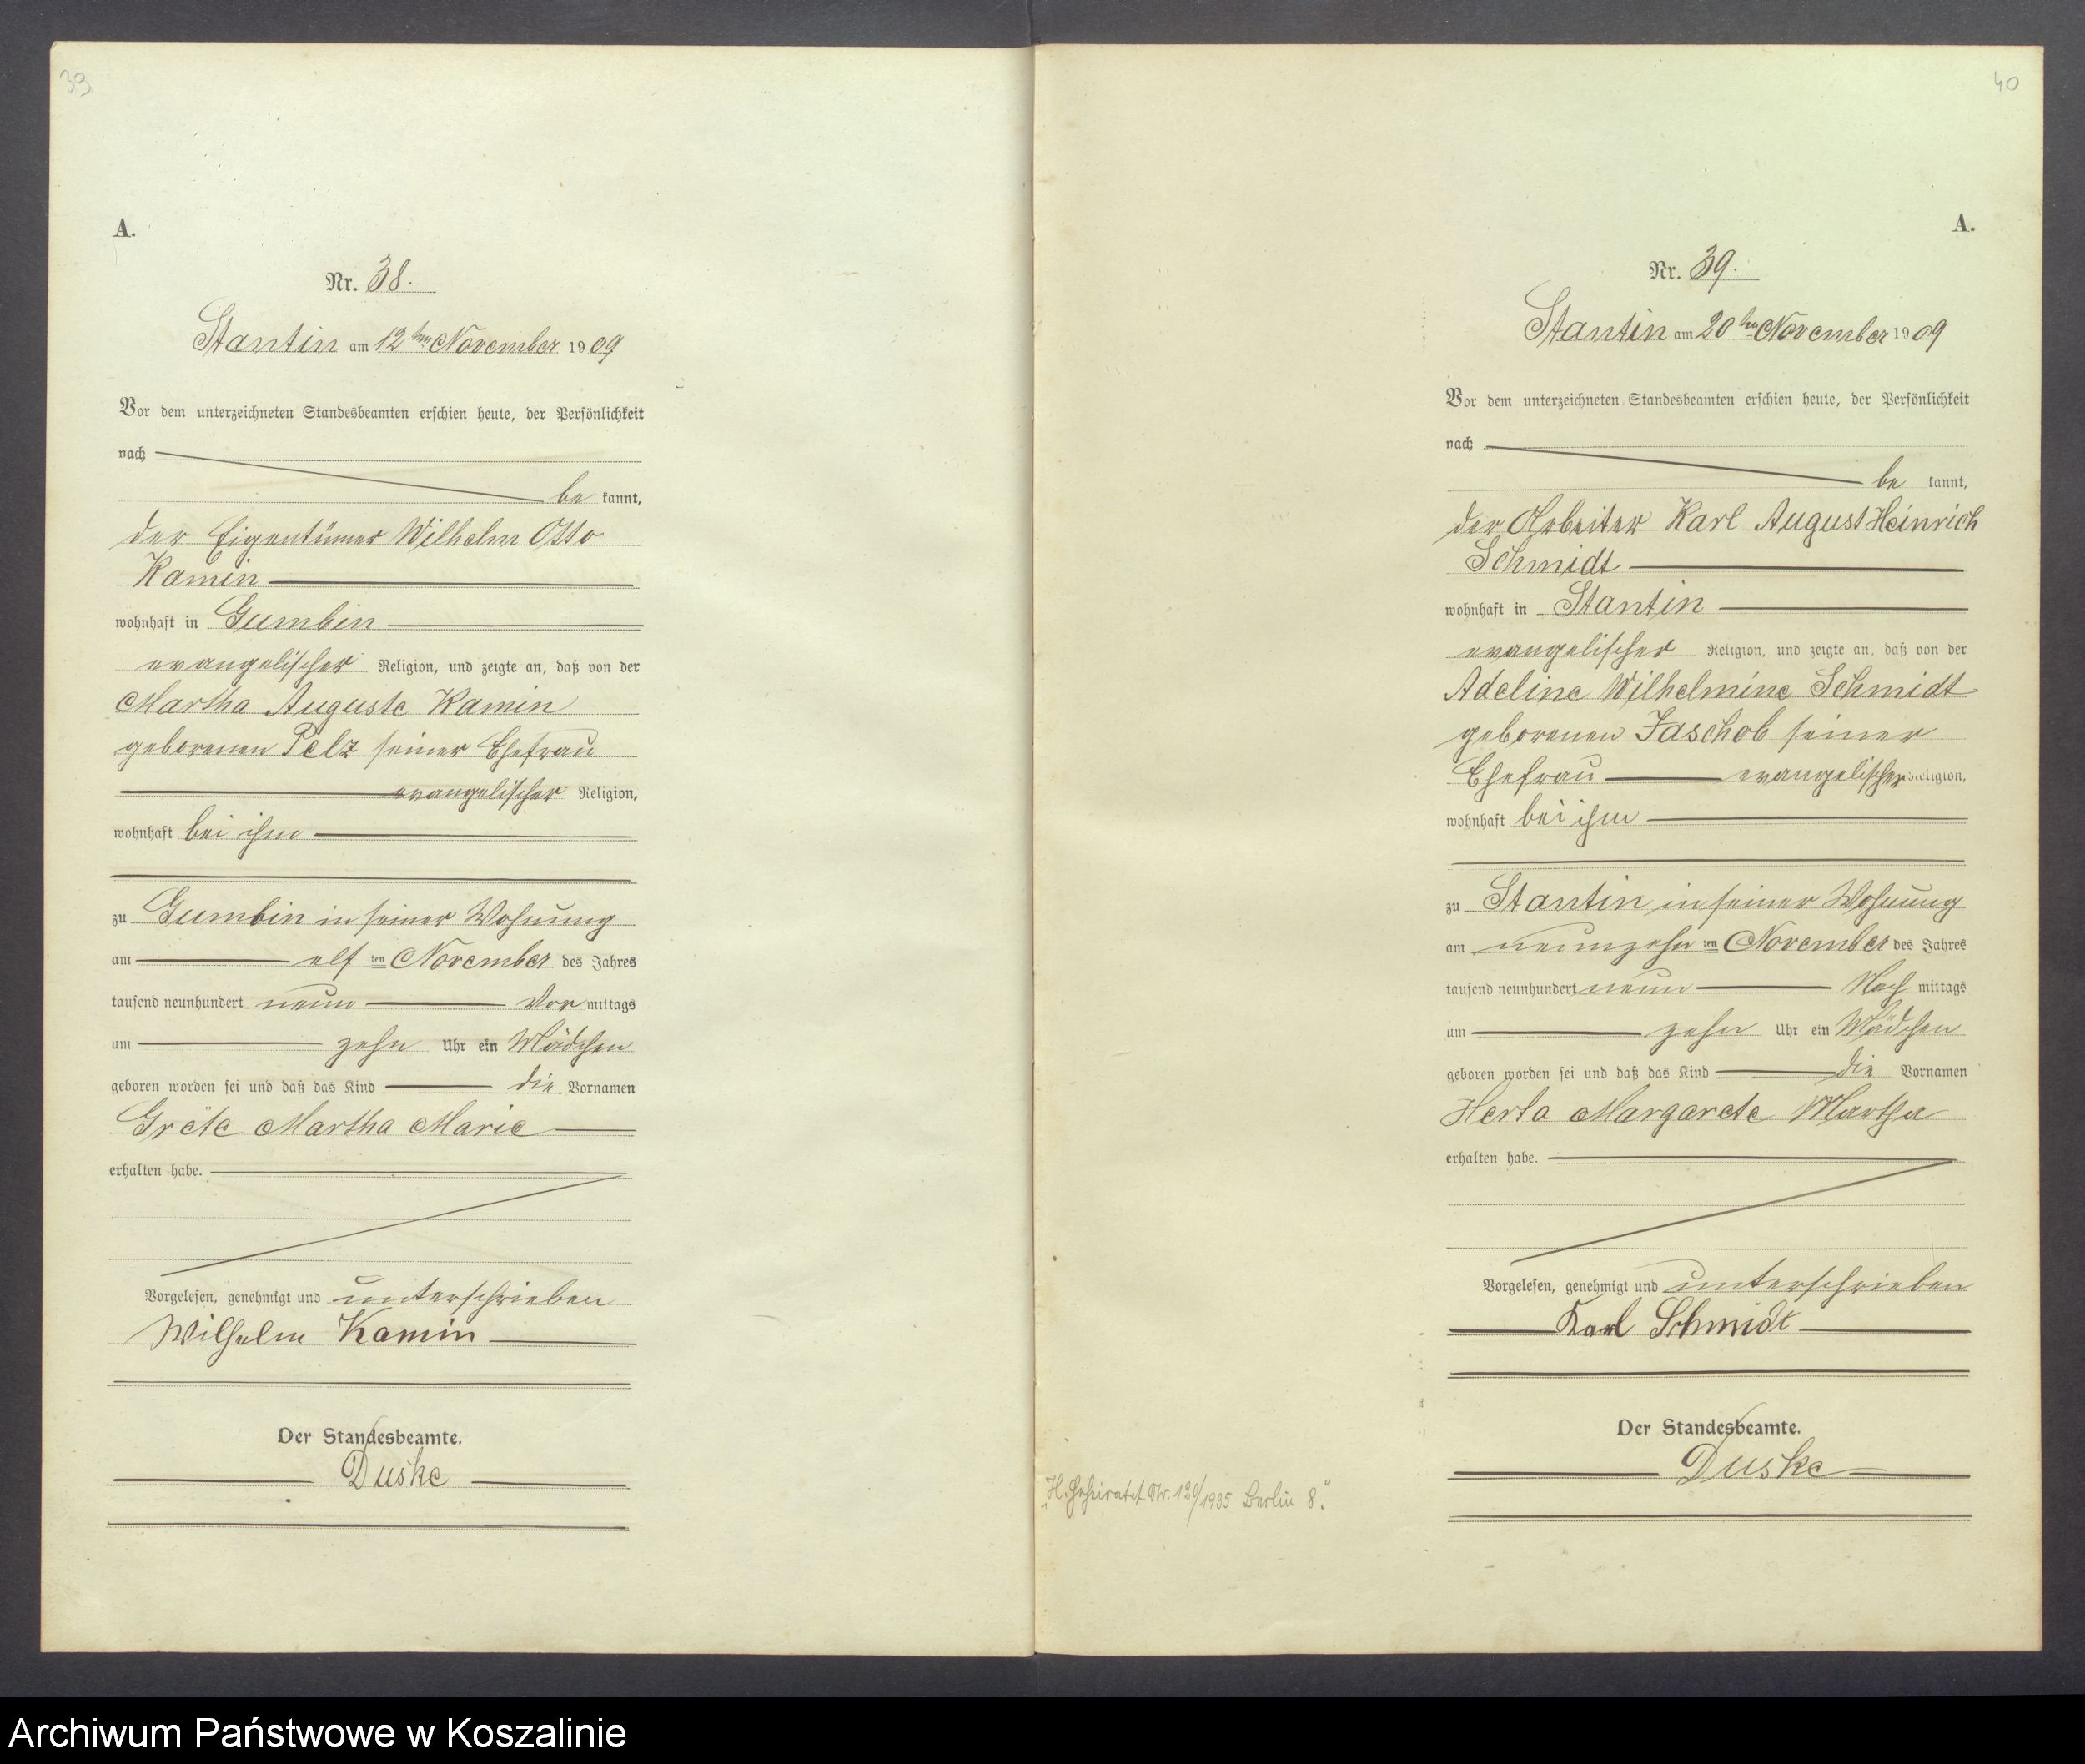 39
A.
Nr. 38.
Stantin am 12ten November 1909
Vor dem unterzeichneten Standesbeamten erschien heute, der Persönlichkeit
nach
be kannt,
der Eigentümer Wilhelm Otto
Kamin
wohnhaft in Gumbin
evangelischer Religion, und zeigte an, daß von der
Martha Auguste Kamin
geborenen Pelz seiner Ehefrau
evangelischer Religion,
wohnhaft bei ihm
zu Gumbin in seiner Wohnung
am elf ten November des Jahres
tausend neunhundert neun Vor mittags
um zehn Uhr ein Mädchen
geboren worden sei und daß das Kind die Vornamen
Grete Martha Marie
erhalten habe.
Vorgelesen, genehmigt und unterschrieben
Wilhelm Kamin
Der Standesbeamte.
Duske
40
A.
Nr. 39.
Stantin am 20ten November 1909
Vor dem unterzeichneten Standesbeamten erschien heute, der Persönlichkeit
nach
be kannt,
der Arbeiter Karl August Heinrich
Schmidt
wohnhaft in Stantin
evangelischer Religion, und zeigte an, daß von der
Adeline Wilhelmine Schmidt
geborenen Jaschob seiner
Ehefrau evangelischer Religion,
wohnhaft bei ihm
zu Stantin in seiner Wohnung
am neunzehn ten November des Jahres
tausend neunhundert neun Nach mittags
um zehn Uhr ein Mädchen
geboren worden sei und daß das Kind die Vornamen
Herta Margarete Martha
erhalten habe.
Vorgelesen, genehmigt und unterschrieben
Karl Schmidt
Der Standesbeamte.
Duske
"H. Geheiratet Nr. 120/1935 Berlin 8."
Archiwum Państwowe w Koszalinie